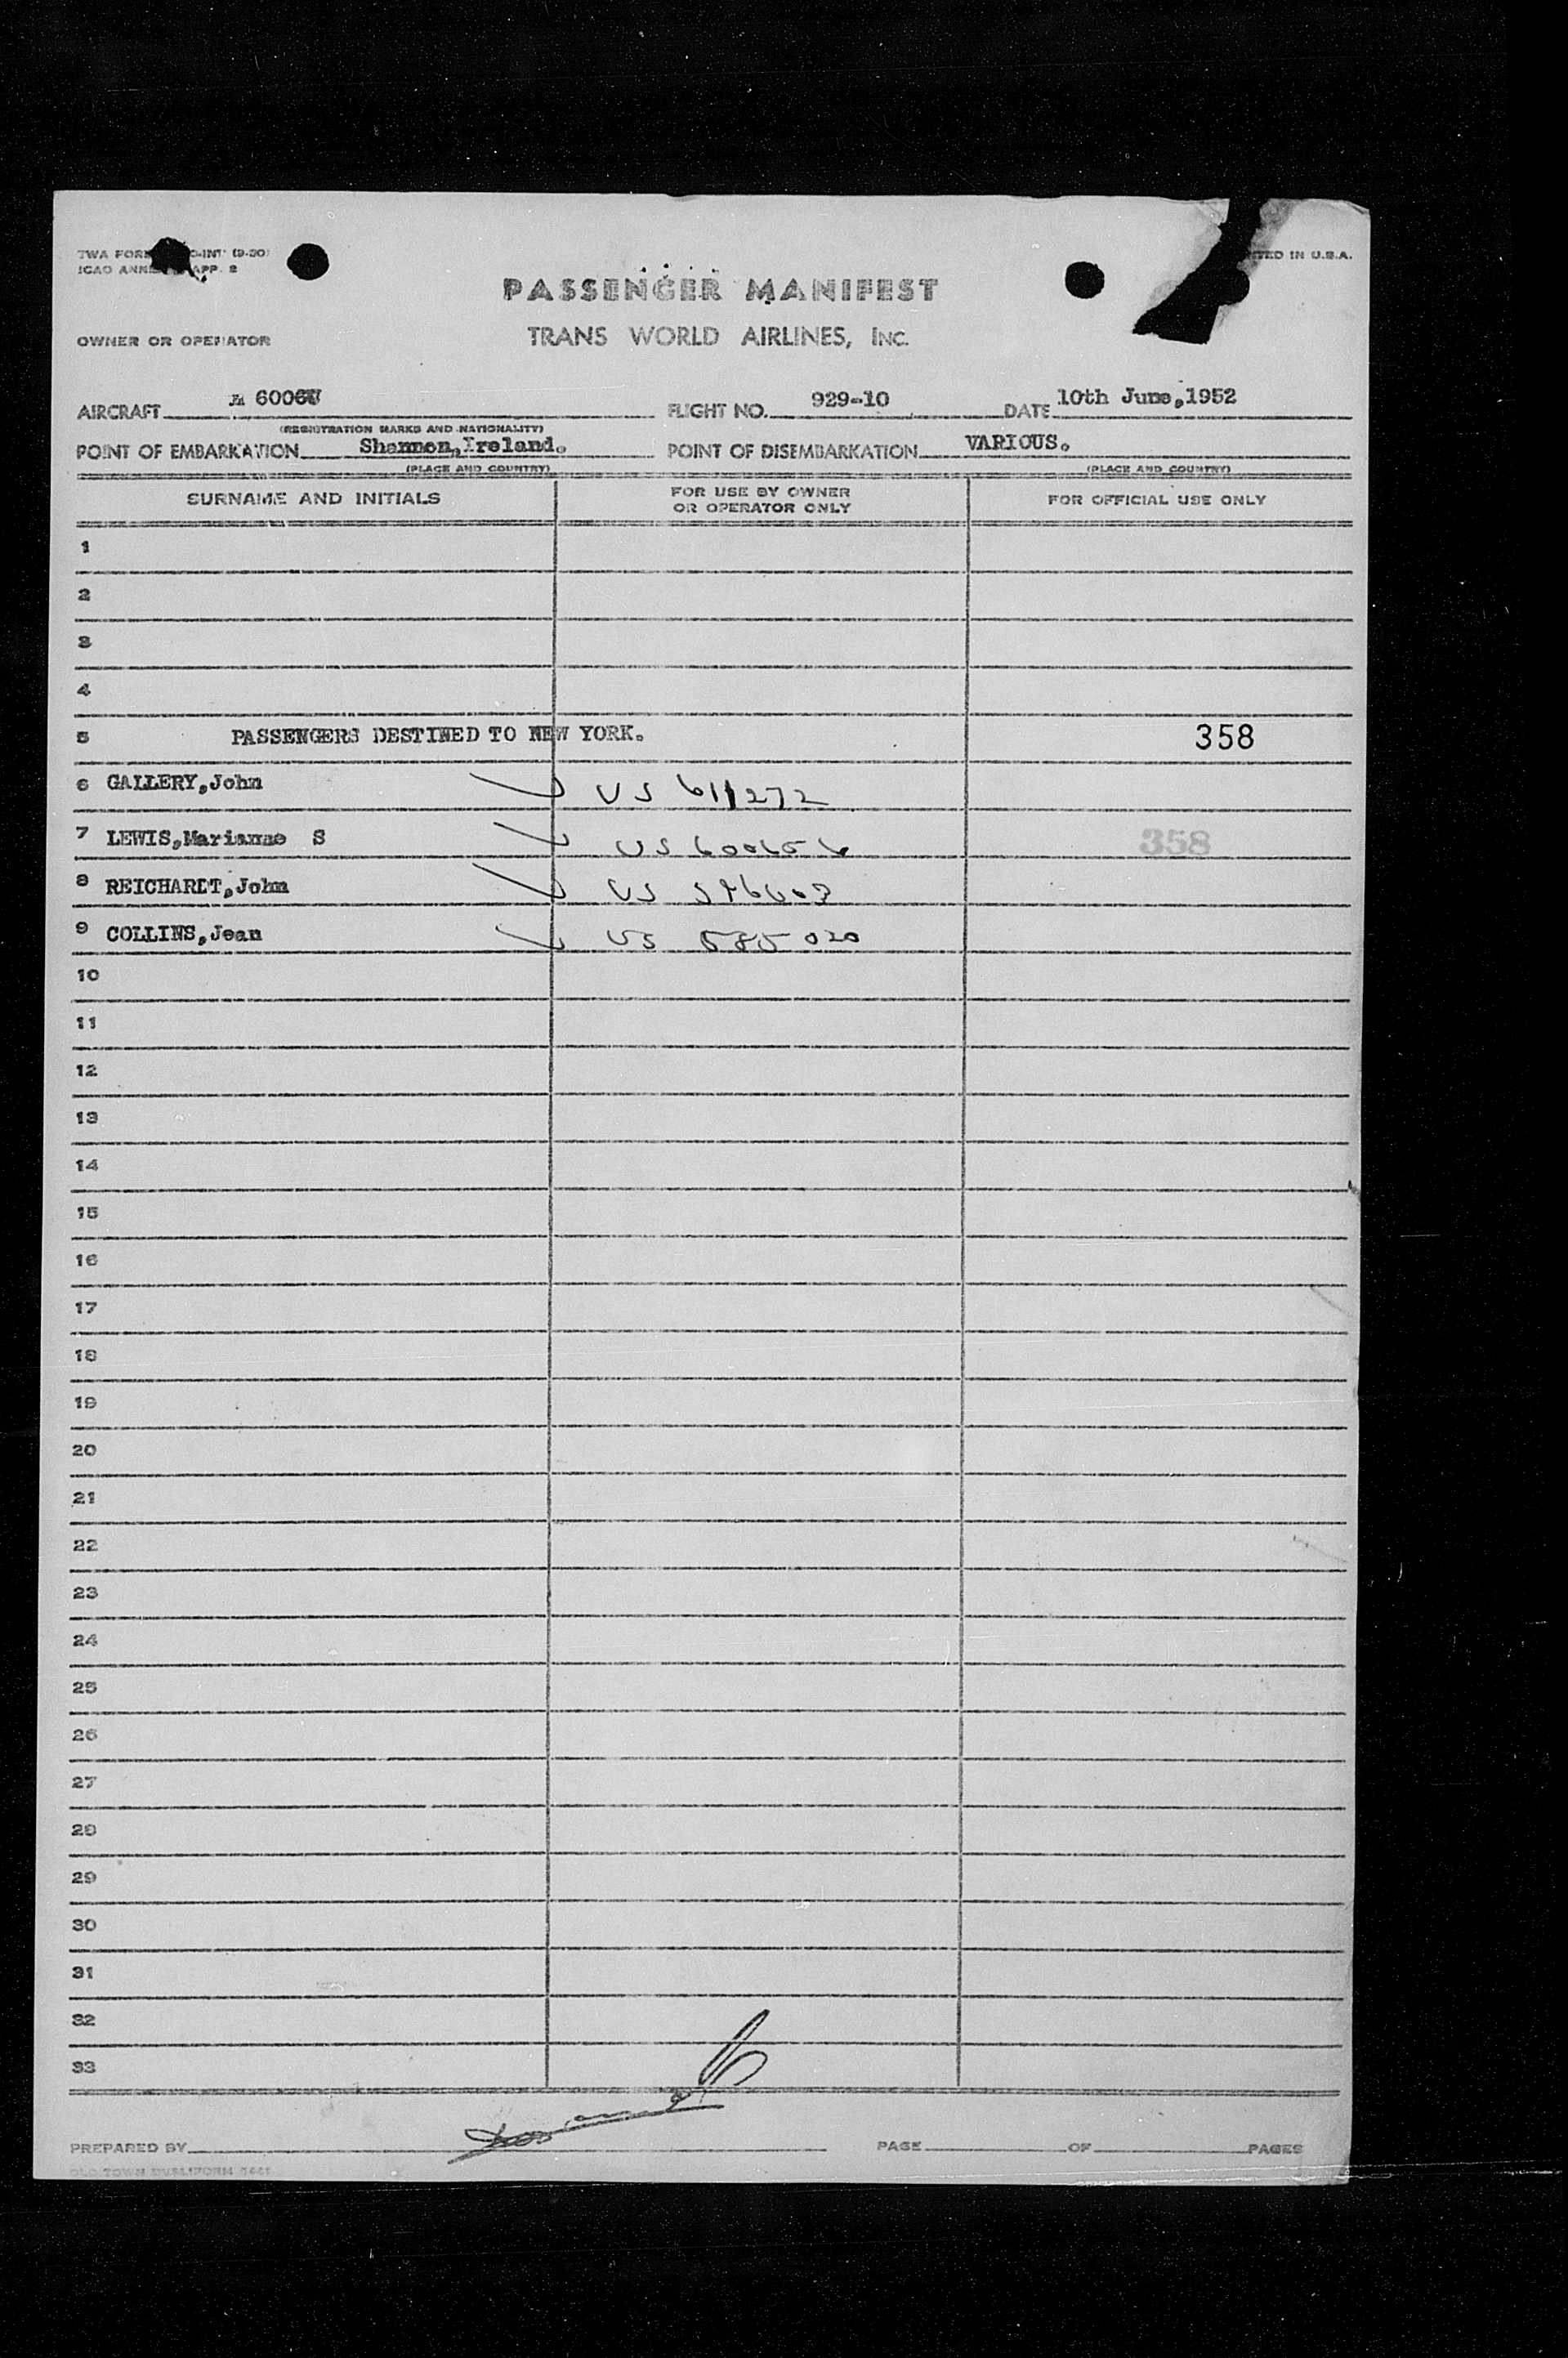 PRINTED IN U.S.A.
ICAO ANNEX APP. 2
PASSENGER MANIFEST
OWNER OR OPERATOR
TRANS WORLD AIRLINES, INC.
AIRCRAFT N 6006 FLIGHT NO. 929-10 DATE 10th June,1952
(REGISTRATION MARKS AND NATIONALITY)
POINT OF EMBARKATION Shannon,Ireland. POINT OF DISEMBARKATION VARIOUS.
(PLACE AND COUNTRY) (PLACE AND COUNTRY)
SURNAME AND INITIALS FOR USE BY OWNER OR OPERATOR ONLY FOR OFFICIAL USE ONLY
1
2
3
4
5 PASSENGERS DESTINED TO NEW YORK. 358
6 GALLERY,John US 611272
7 LEWIS,Marianne S US 600656 358
8 REICHARDT,John US
9 COLLINS,Jean US 585020
10
11
12
13
14
15
16
17
18
19
20
21
22
23
24
25
26
27
28
29
30
31
32
33
PREPARED BY PAGE OF PAGES